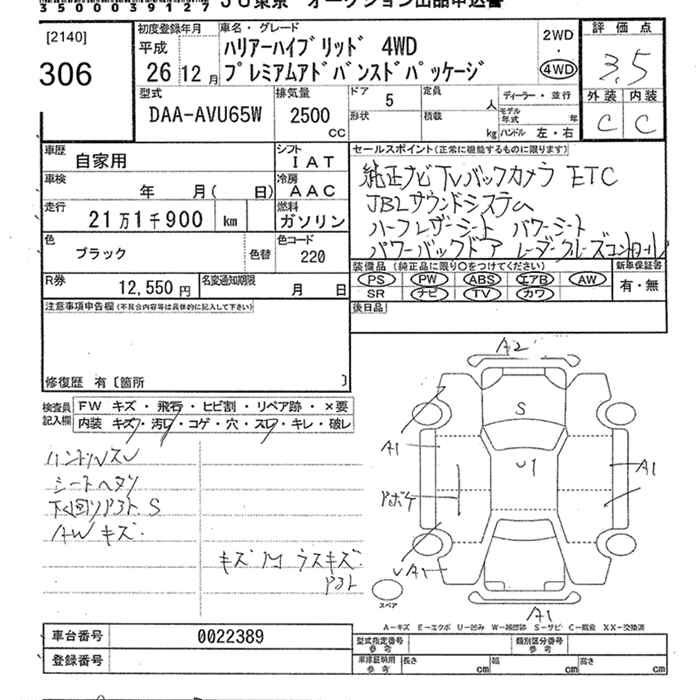 35000039127 JU東京 オークション出品申込書
[2140]
306
初度登録年月
平成
26 12月
車名・グレード
ハリアーハイブリッド 4WD
プレミアムアドバンスドパッケージ
2WD
4WD
評価点
3.5
外装 内装
C C
型式
DAA-AVU65W
排気量
2500
CC
ドア 5
形状
定員 人
積載 kg
ディーラー・並行
モデル年式 年
ハンドル 左・右
車歴
自家用
シフト
IAT
車検
年 月( 日)
冷房
AAC
走行
21万1千900 km
燃料
ガソリン
色
ブラック
色替
色コード
220
R券
12,550円
名変通知期限
月 日
セールスポイント(正常に機能するものに限ります)
純正ナビTVバックカメラ ETC
JBLサウンドシステム
ハーフレザーシート パワーシート
パワーバックドア レーダークルーズコントロール
装備品(純正品に限り○をつけてください)
PS PW ABS エアB AW
SR ナビ TV カワ
新車保証書
有・無
後日品
注意事項申告欄(不具合内容等は具体的に記入して下さい)
修復歴 有〔箇所 〕
検査員記入欄
FW キズ・飛石・ヒビ割・リペア跡・×要
内装 キズ・汚レ・コゲ・穴・スレ・キレ・破レ
ハンドルスレ
シートヘタリ
下回りアト S
AWキズ
キズ 凹 ウスキズ
アト
A2
S
A1
U1
A1
UA1
A1
スペア
A-キズ E-エクボ U-凹み W-補修跡 S-サビ C-腐食 XX-交換済
車台番号 0022389
登録番号
型式指定番号
参考
類別区分番号
参考
車庫証明用
参考
長さ cm 幅 cm 高さ cm